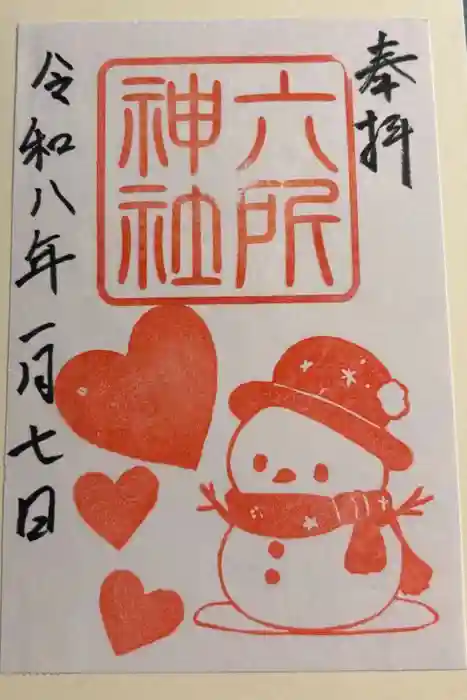 奉拝
六所
神社
令和八年一月七日